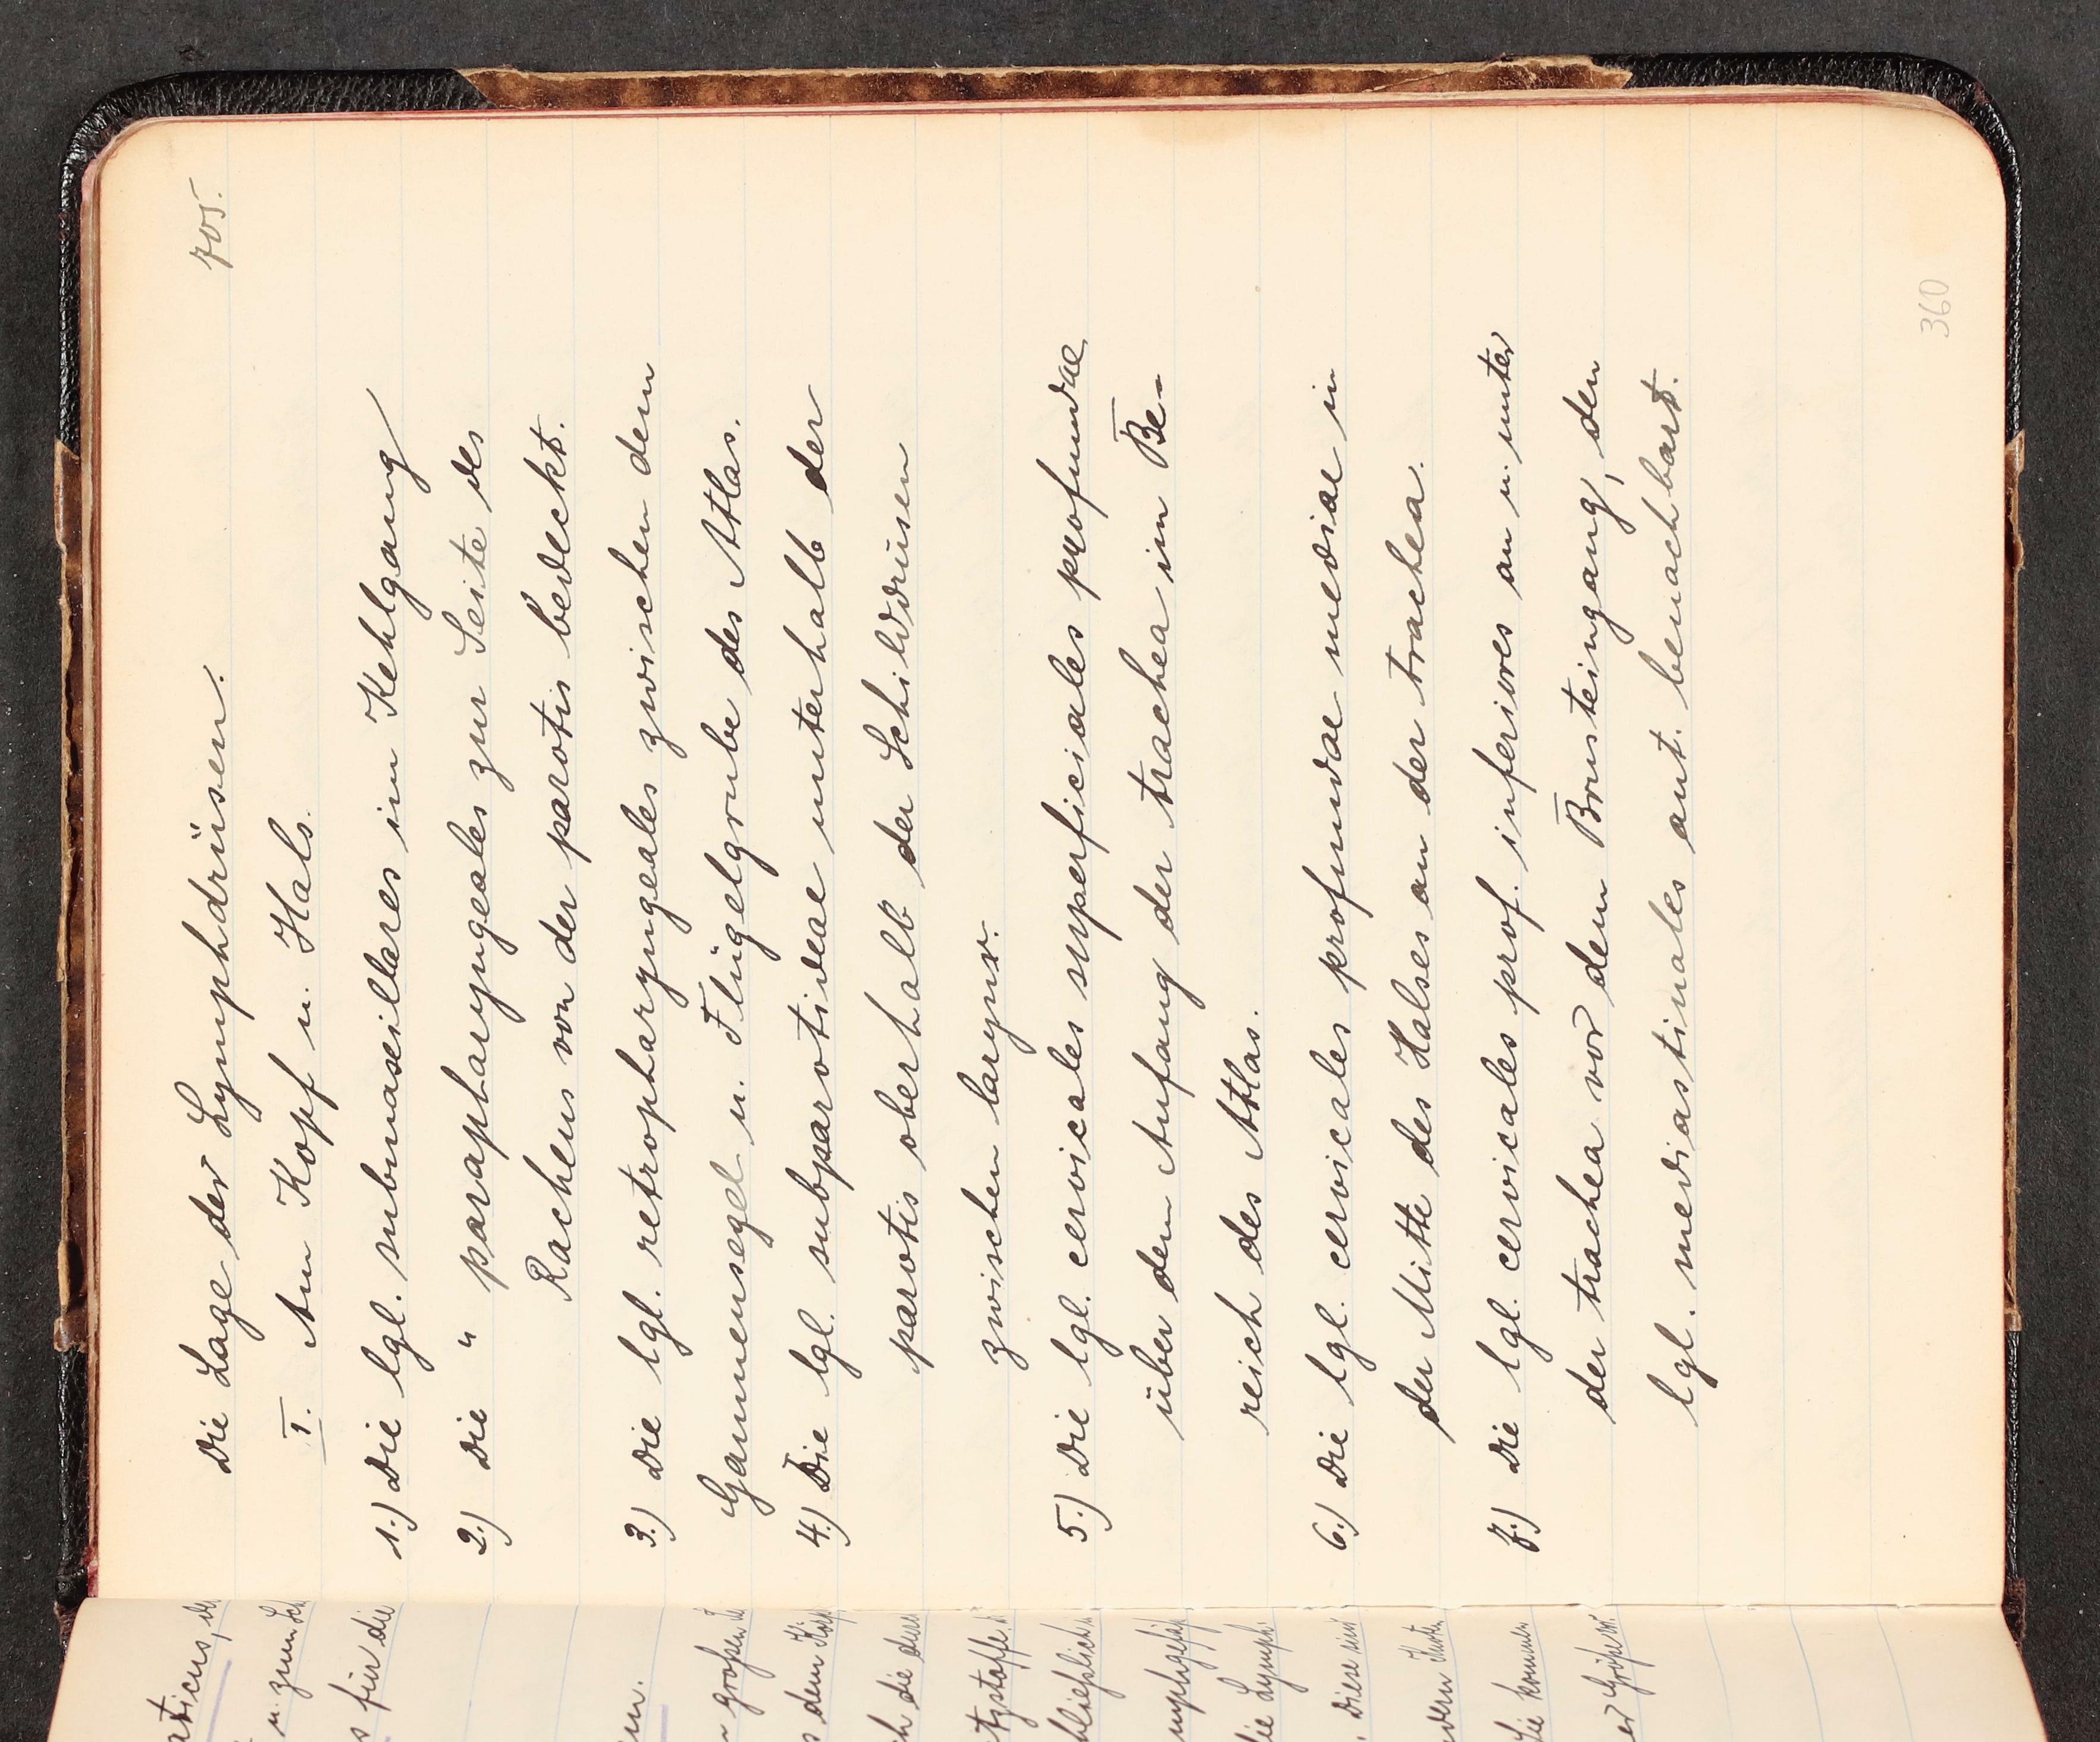 705.
Die Lage der Lymphdrüsen.
I. Am Kopf u. Hals.
1.) Die lgl. submaxillares im Kehlgang
2.) Die " parapharyngeales zur Seite des
Rachens von der parotis bedeckt.
3.) Die lgl. retropharyngeales zwischen dem
Gaumensegel u. Flügelgrube des Atlas.
4.) Die lgl. subparotideae unterhalb der
parotis oberhalb der Schilddrüsen
zwischen larynx.
5.) Die lgl. cervicales superficiales profundae
über dem Anfang der trachea im Be-
reich des Atlas.
6.) Die lgl. cervicales profundae mediae in
der Mitte des Halses an der trachea.
7.) Die lgl. cervicales prof. inferiores an u. unter
der trachea vor dem Brusteingang, den
lgl. mediastinales ant. benachbart.
360
u. zum
s für die
großen
dem
ch die
die Lymph
Diese
Sie kommen
er Größe